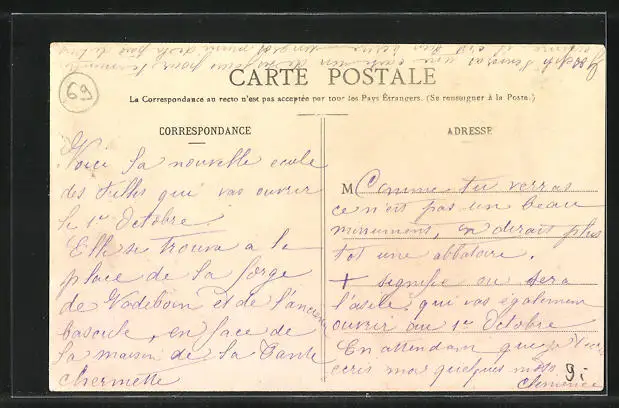 69
CARTE POSTALE
La Correspondance au recto n'est pas acceptée par tous les Pays Étrangers. (Se renseigner à la Poste.)
CORRESPONDANCE
Voici la nouvelle ecole
des filles qui vas ouvrir
le 1er Octobre
Elle se trouva a la
place de la forge
de Vadeboin et de l'ancienne
bascule, en face de
la maison de la Tante
Chermette
ADRESSE
M Comme tu verras
ce n'est pas un beau
monument, on dirait plus
tot une abbatoire.
+ signifie ou sera
l'asile qui vas égalemen
ouvrir au 1er Octobre
En attendan que je t'
ecris moi quelques mots
9.-